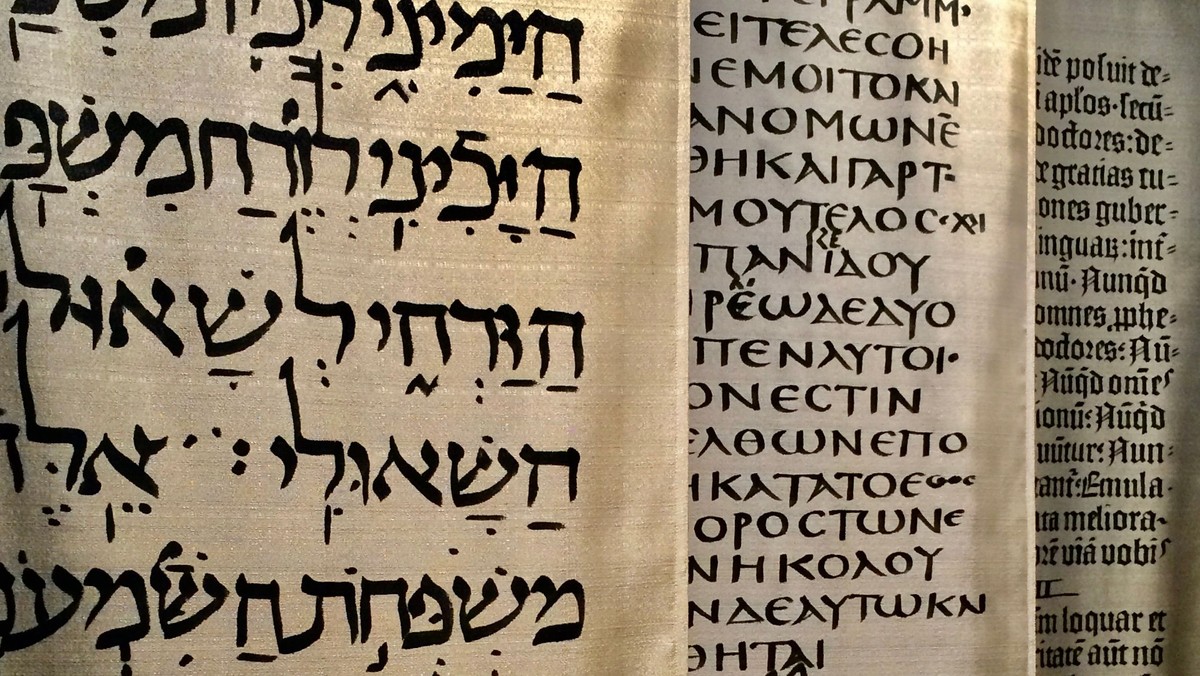 הַיָּמִינִי
הַיָּכִינִי לְזֶרַח מִשְׁפַּ
הַזַּרְחִי לְשָׁאוּל
הַשָּׁאוּלִי׃ אֵלֶּה
מִשְׁפְּחֹת הַשִּׁמְעֹנִ
ΕΙΤΕΛΕCΘΗ
ΝΕΜΟΙΤΟΚΑΙ
ΑΝΟΜΩΝΕ̅
ΘΗΚΑΙΓΑΡΤ
ΜΟΥΤΕΛΟC·ΧΙ
ΠΑΝΙΔΟΥ
ΡΕΩΔΕΔΥΟ
ΠΕΝΑΥΤΟΙ·
ΟΝΕCΤΙΝ
ΕΛΘΩΝΕΠΟ
ΗΚΑΤΑΤΟΕΘΟC
ΟΡΟCΤΩΝΕ
ΝΗΚΟΛΟΥ
ΝΔΕΑΥΤΩΚΑΙ
ΘΗΤΑΙ
idē posuit de=
aplos·secū=
doctores:de=
gratias cu=
ones guber=
inguaꝝ:int̄=
nū·Nunqd̄
omnes ꝓphe=
doctores:Nū=
Nūqd̄ omēs
ionū:Nūqd̄
uūtur:Nun=
tant̄:Emula·
ta meliora·
rē viā vobis
II
im loquar et
ritatē aūt nō